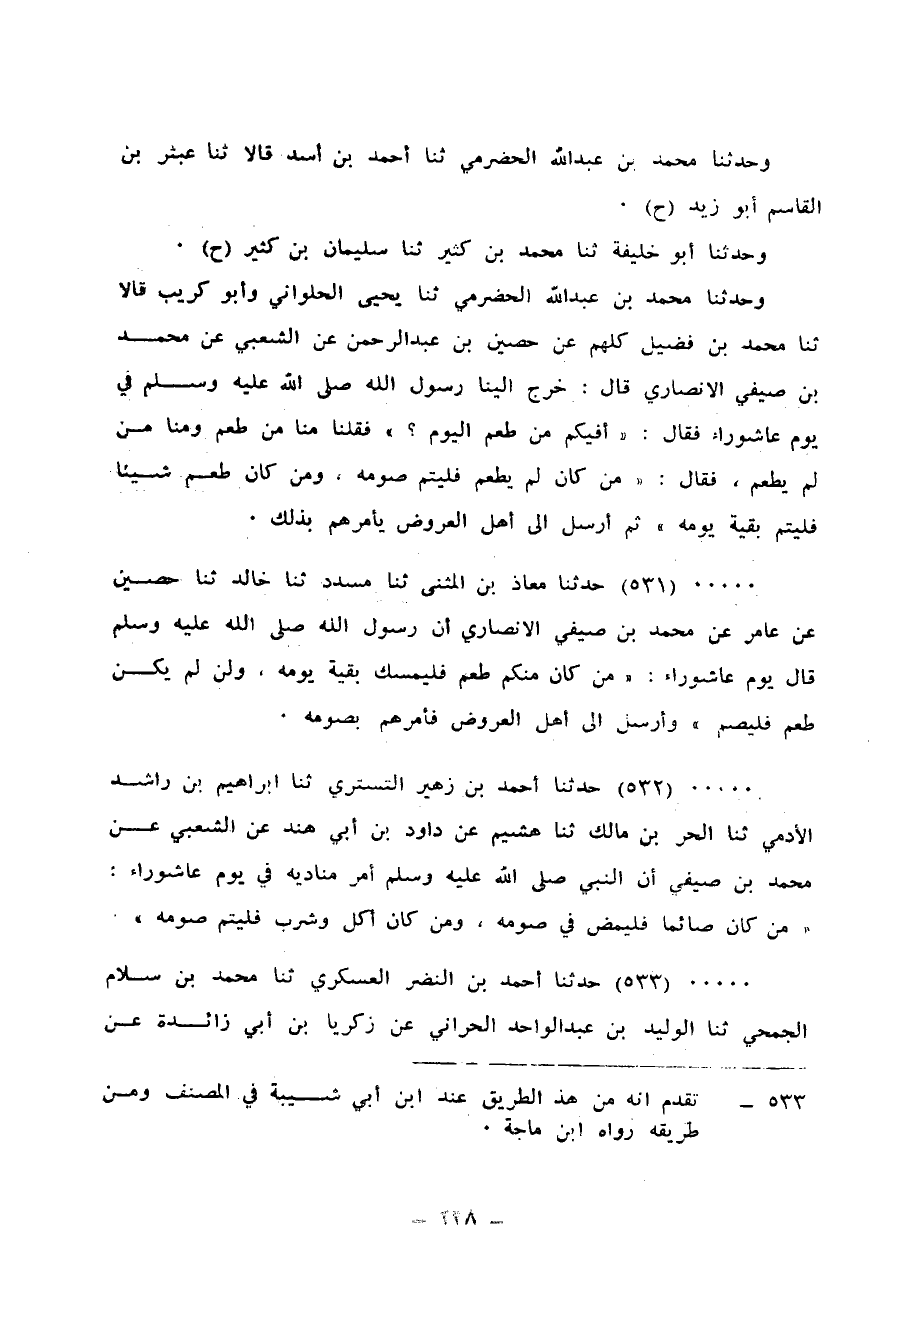 وحدثنا محمد بن عبدالله الحضرمي ثنا أحمد بن أسد قالا ثنا عبثر بن
القاسم أبو زيد (ح) ٠
وحدثنا أبو خليفة ثنا محمد بن كثير ثنا سليمان بن كثير (ح) ٠
وحدثنا محمد بن عبدالله الحضرمي ثنا يحيى الحلواني وأبو كريب قالا
ثنا محمد بن فضيل كلهم عن حصين بن عبدالرحمن عن الشعبي عن محمد
بن صيفي الانصاري قال : خرج الينا رسول الله صلى الله عليه وسلم في
يوم عاشوراء فقال : « أفيكم من طعم اليوم ؟ » فقلنا منا من طعم ومنا من
لم يطعم ، فقال : « من كان لم يطعم فليتم صومه ، ومن كان طعم شيئا
فليتم بقية يومه » ثم أرسل الى أهل العروض يأمرهم بذلك ٠
٠٠٠٠٠ (٥٣١) حدثنا معاذ بن المثنى ثنا مسدد ثنا خالد ثنا حصين
عن عامر عن محمد بن صيفي الانصاري أن رسول الله صلى الله عليه وسلم
قال يوم عاشوراء : « من كان منكم طعم فليمسك بقية يومه ، ولن لم يكن
طعم فليصم » وأرسل الى أهل العروض فأمرهم بصومه ٠
٠٠٠٠٠ (٥٣٢) حدثنا أحمد بن زهير التستري ثنا ابراهيم بن راشد
الأدمي ثنا الحر بن مالك ثنا هشيم عن داود بن أبي هند عن الشعبي عن
محمد بن صيفي أن النبي صلى الله عليه وسلم أمر مناديه في يوم عاشوراء :
« من كان صائما فليمض في صومه ، ومن كان أكل وشرب فليتم صومه » ٠
٠٠٠٠٠ (٥٣٣) حدثنا أحمد بن النضر العسكري ثنا محمد بن سلام
الجمحي ثنا الوليد بن عبدالواحد الحراني عن زكريا بن أبي زائدة عن
٥٣٣ ـ تقدم انه من هذ الطريق عند ابن أبي شيبة في المصنف ومن
طريقه رواه ابن ماجة ٠
ـ ٢٣٨ ـ